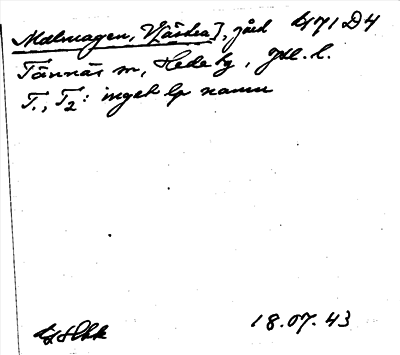 Malmagen, Västra], gård 471 D4
Tännäs sn, Hede tg, Jtl. l.
T1, T2: inget lp namn
18.07.43